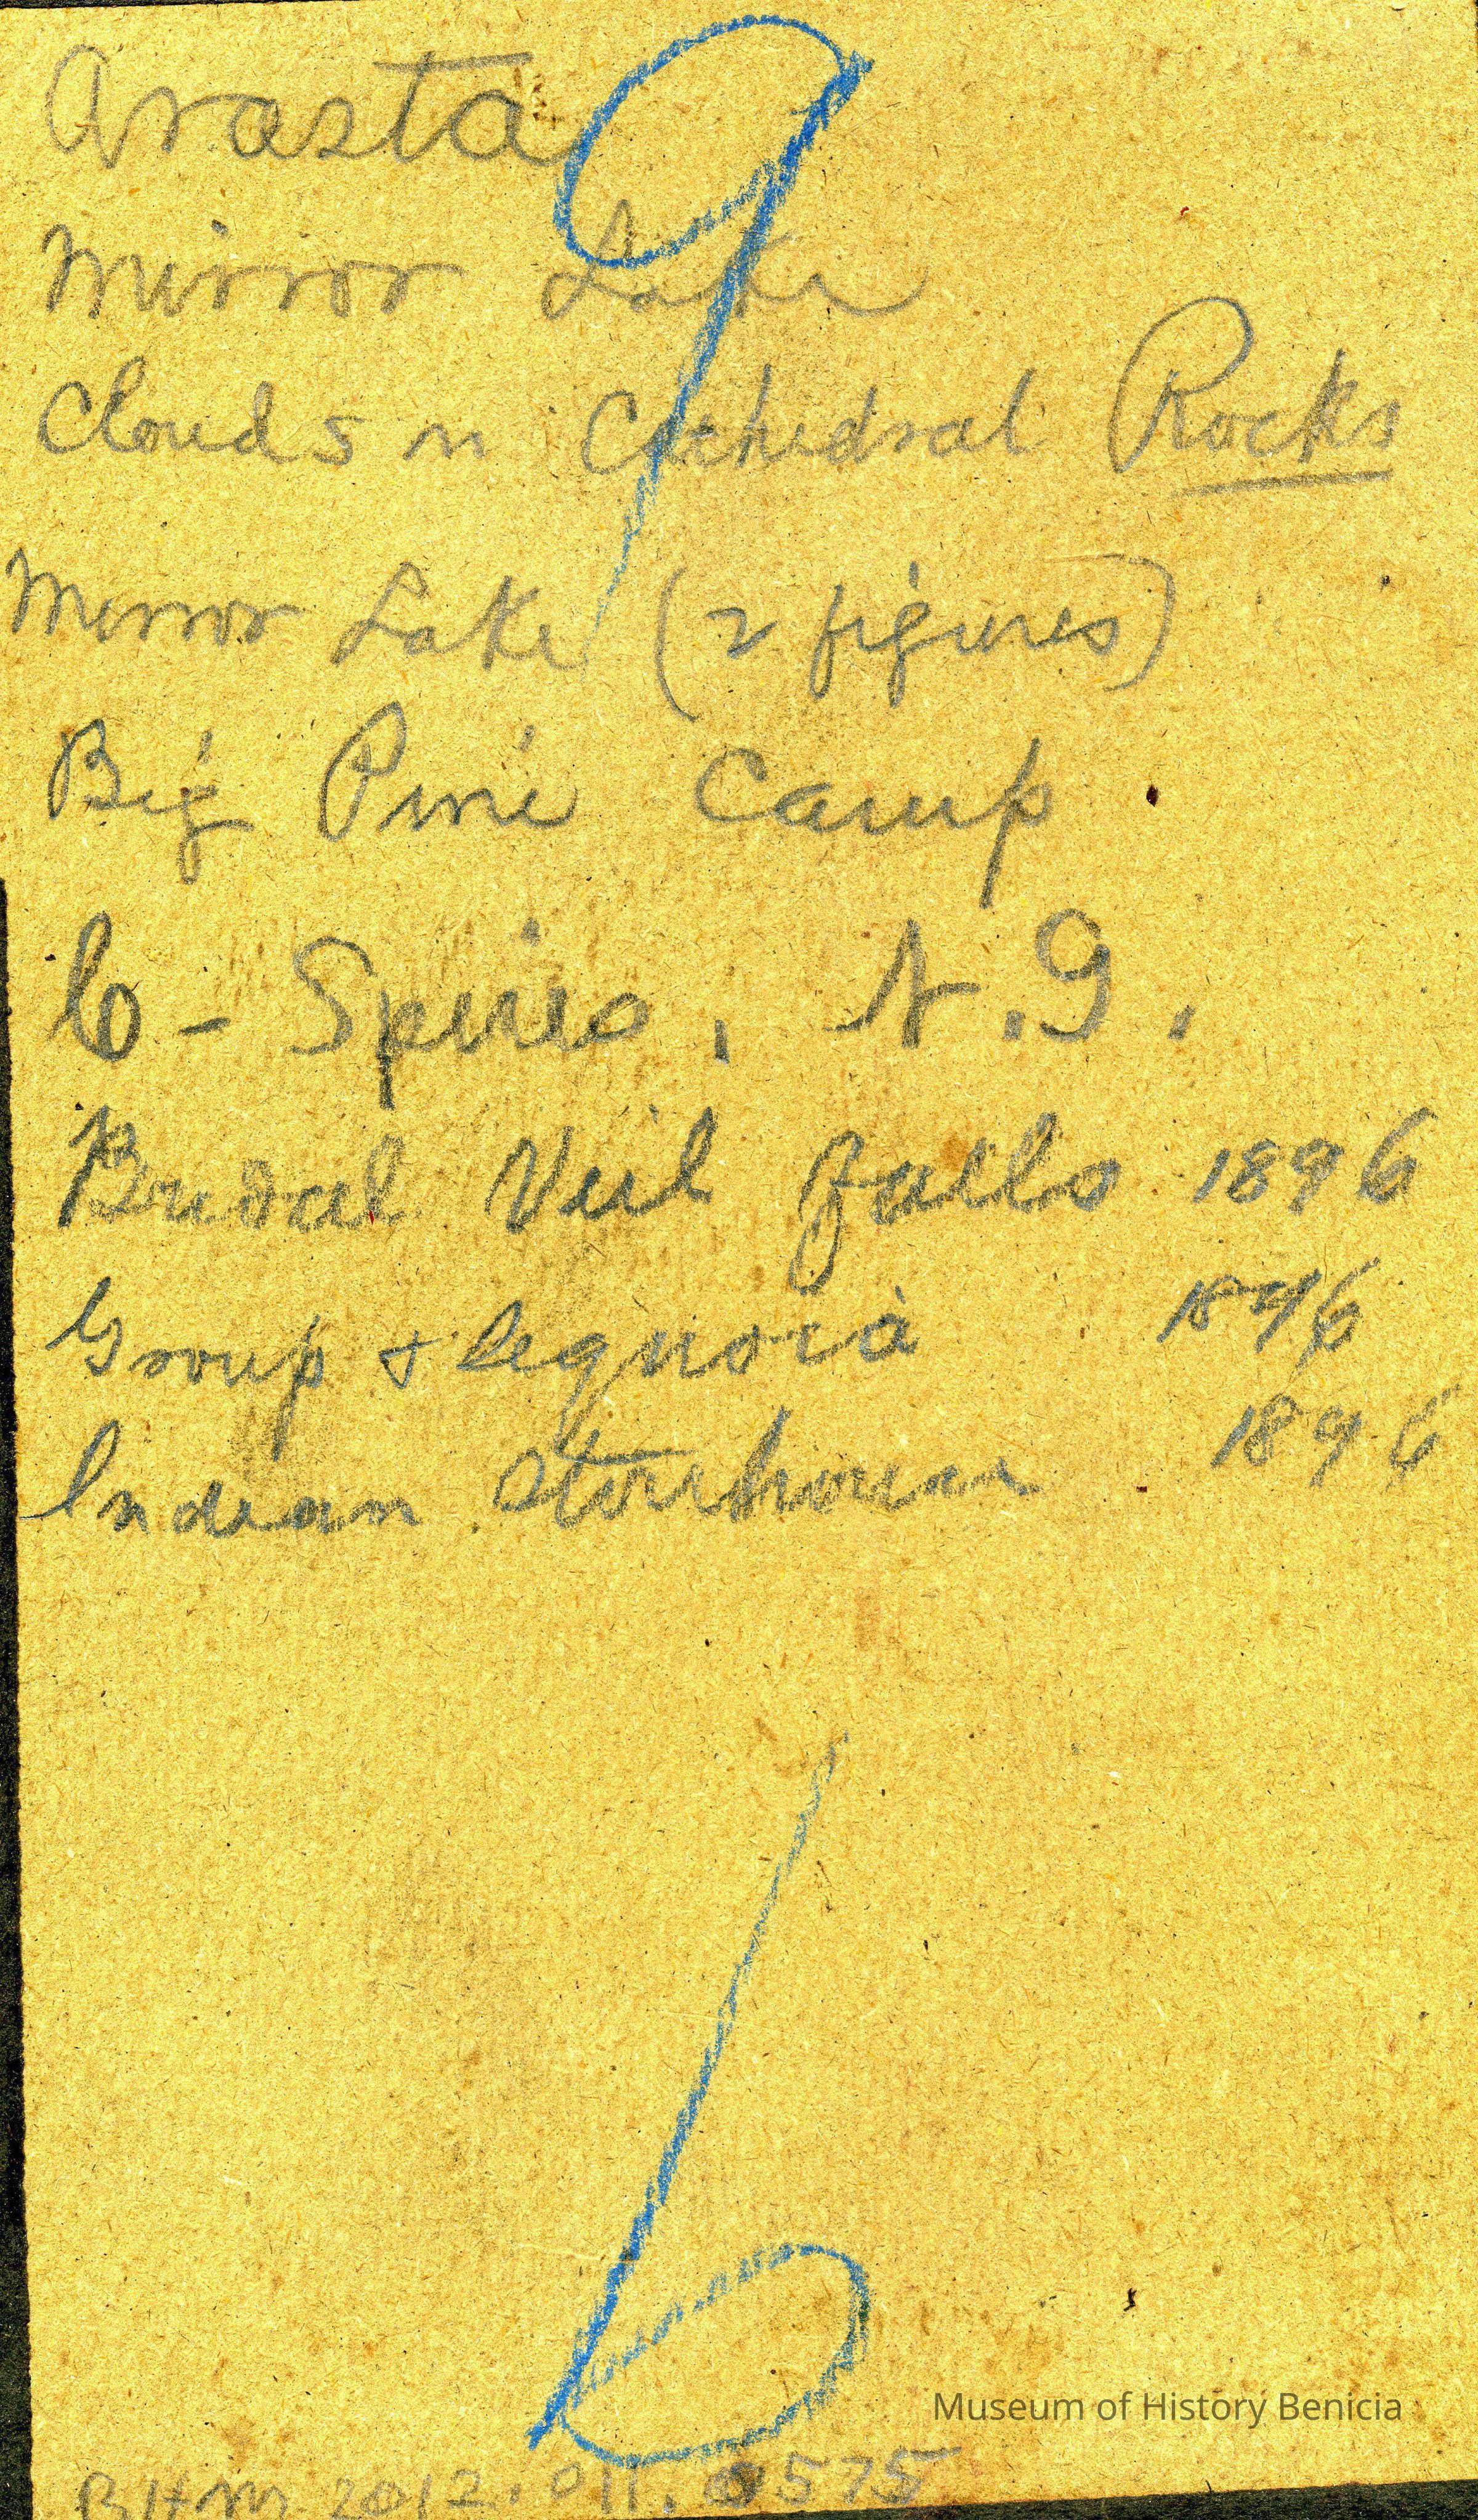 Arasta
9
Mirror Lake
Clouds n Cathedral Rocks
Mirror Lake (2 figures)
Big Pine Camp
Co - Spires, N.G.
Bridal Veil Falls 1896
Group & Sequoia 1896
Indian Storehouse 1896
6
Museum of History Benicia
BHM 2012.011.0575